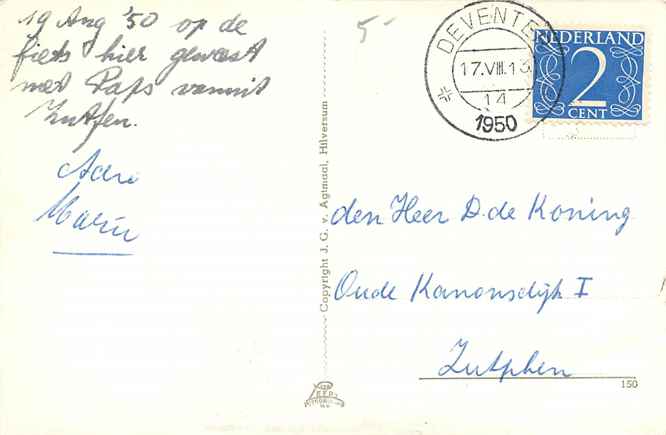 19 Aug '50 op de
fiets hier geweest
met Paps vanuit
Zutfen.
Adri
Marin
5-
DEVENTE
17.VIII.13
14
1950
NEDERLAND
2
CENT
Copyright J. G. v. Agtmaal, Hilversum
den Heer D. de Koning
Oude Kanonsdijk I
Zutphen
150